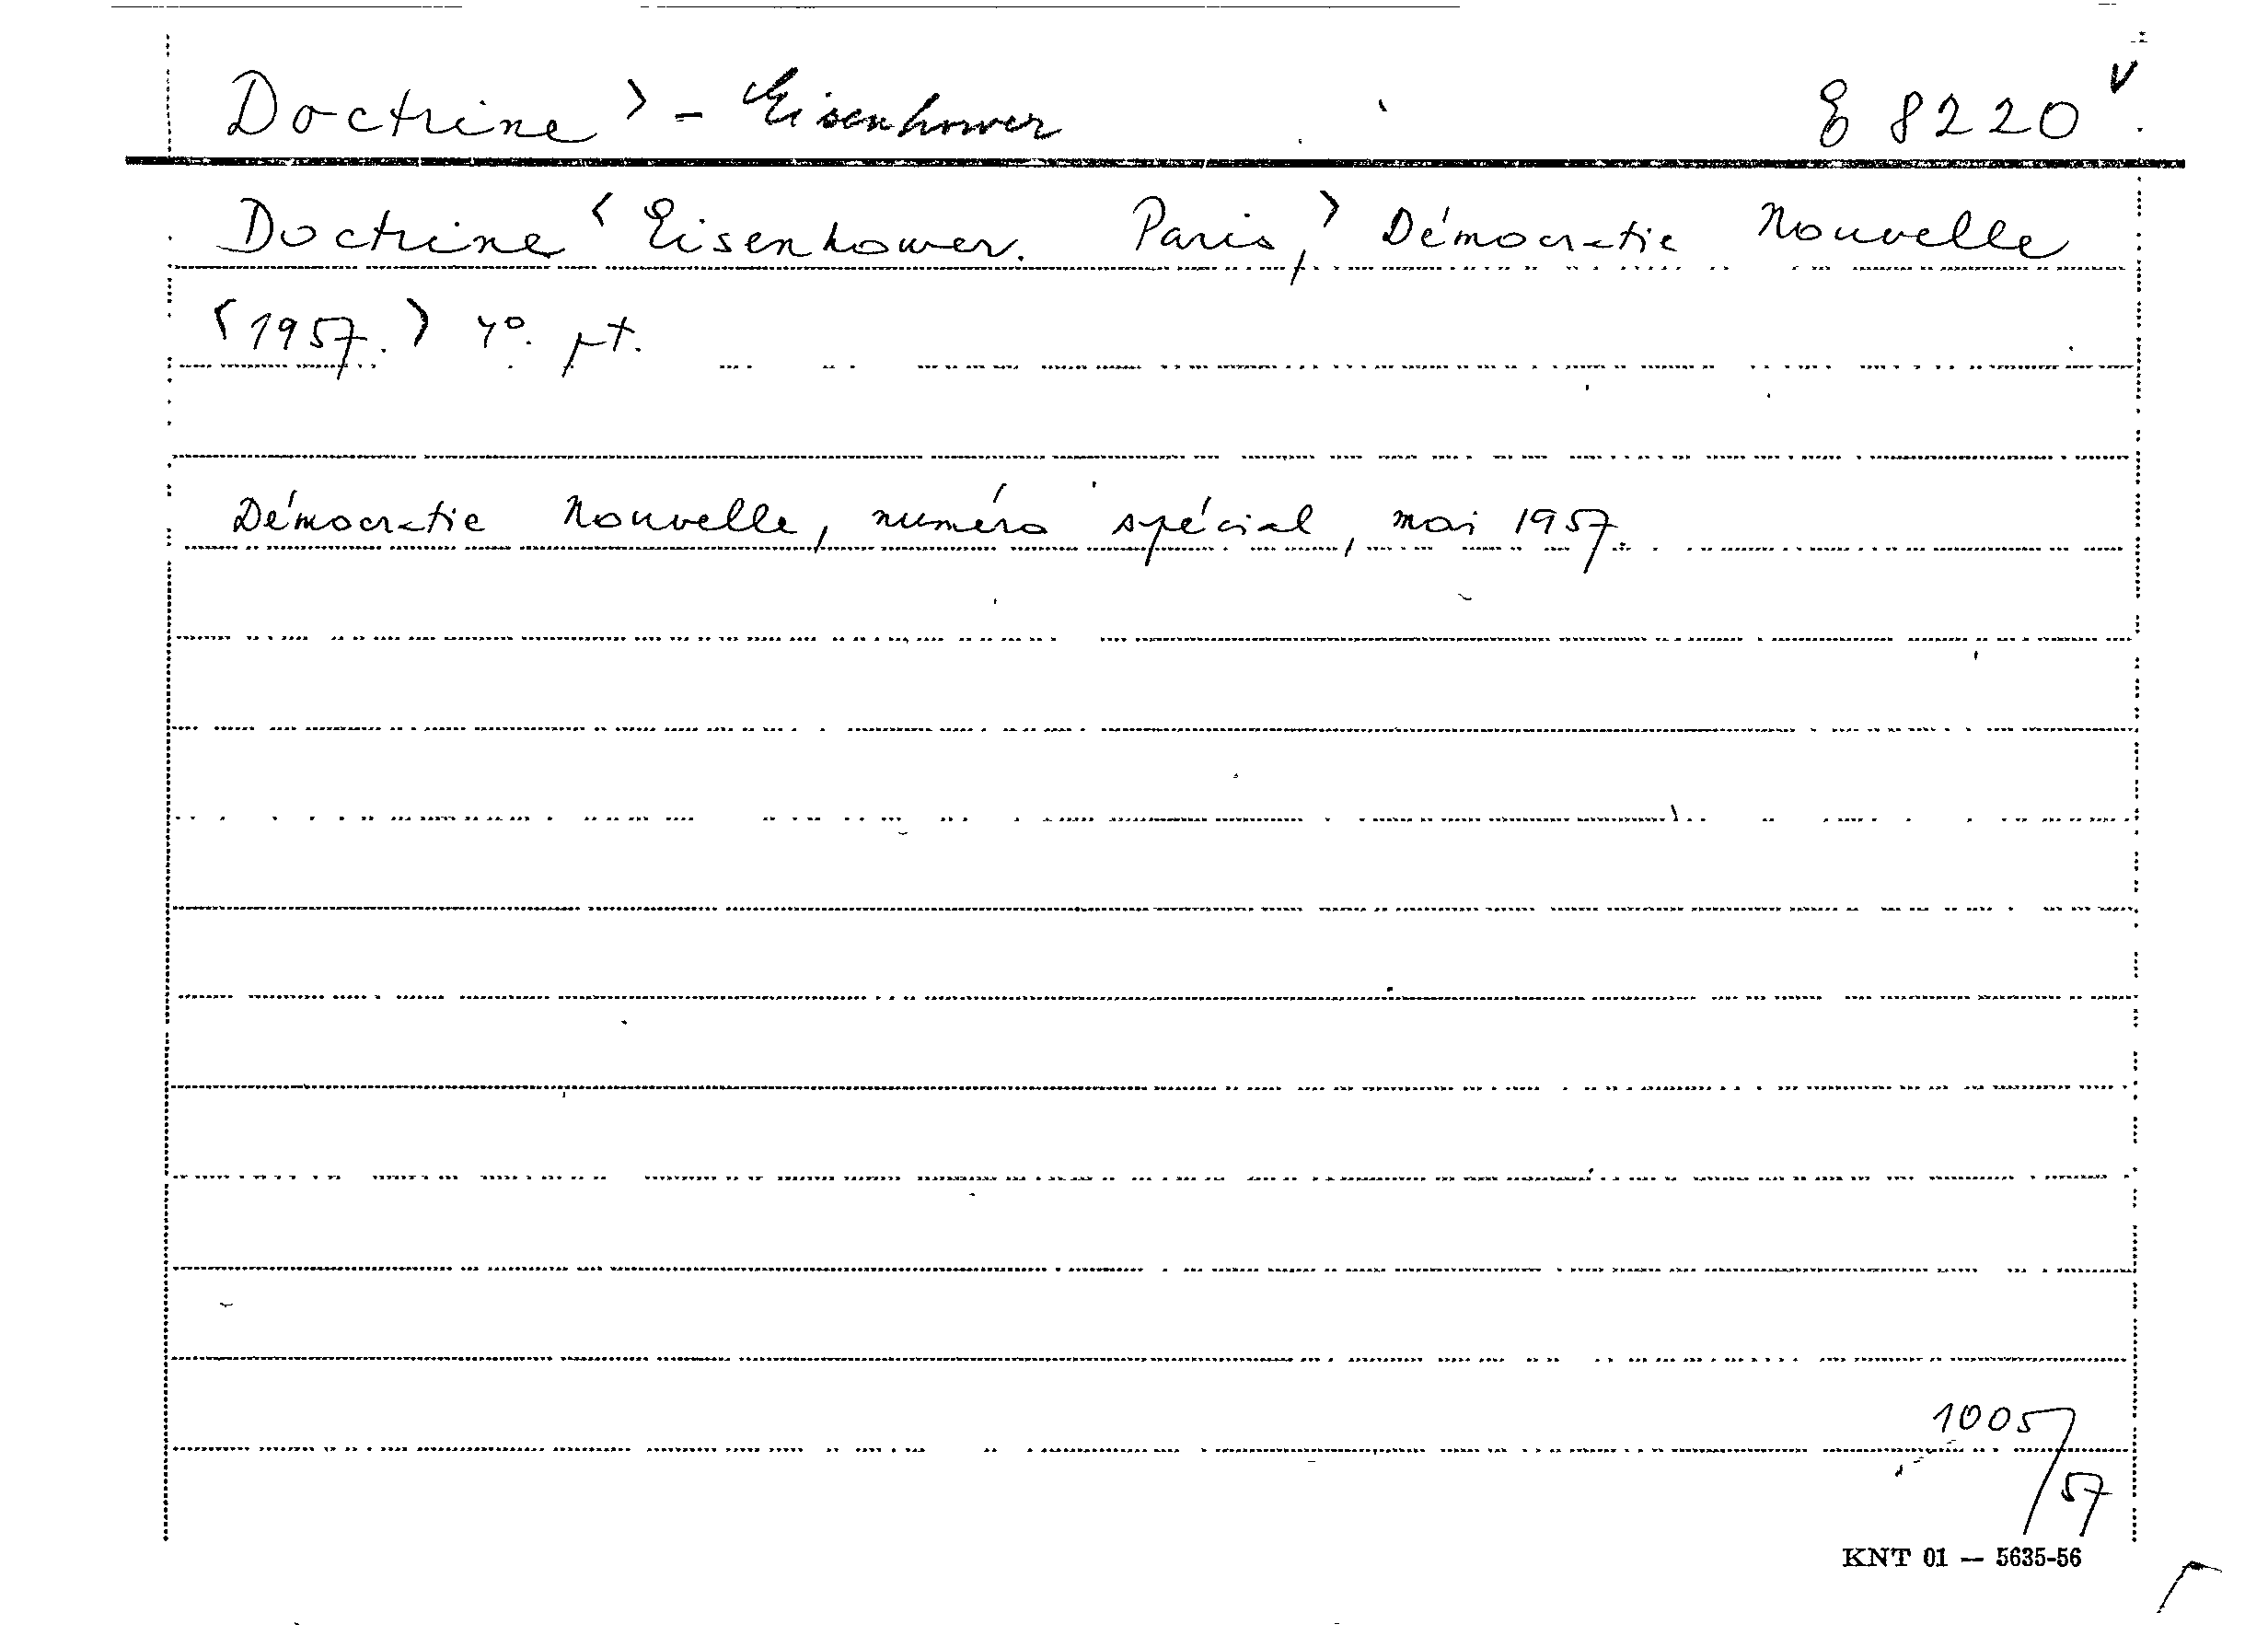 Doctrine > - Eisenhower E 8220 v
Doctrine < Eisenhower. Paris, > Démocratie Nouvelle
<1957.> 4°. pt.
Démocratie Nouvelle, numéro spécial, mai 1957.
1005/57
KNT 01 — 5635-56